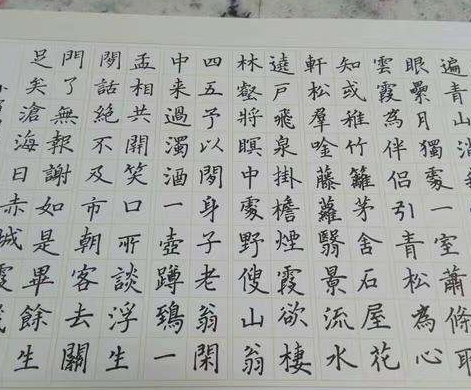 遍青山
眼纍月獨處一室蕭條取
雲霞為伴侶引青松為心
知或稚竹籬茅舍石屋花
軒松羣唫藤蘿翳景流水
遶戶飛泉掛檐煙霞欲棲
林壑將暝中處野傁山翁
四五予以閒身子老翁閑
中来過濁酒一壺蹲鴟一
盂相共開笑口所談浮生
閒話絕不及市朝客去關
門了無報謝如是畢餘生
足矣滄海日赤城霞